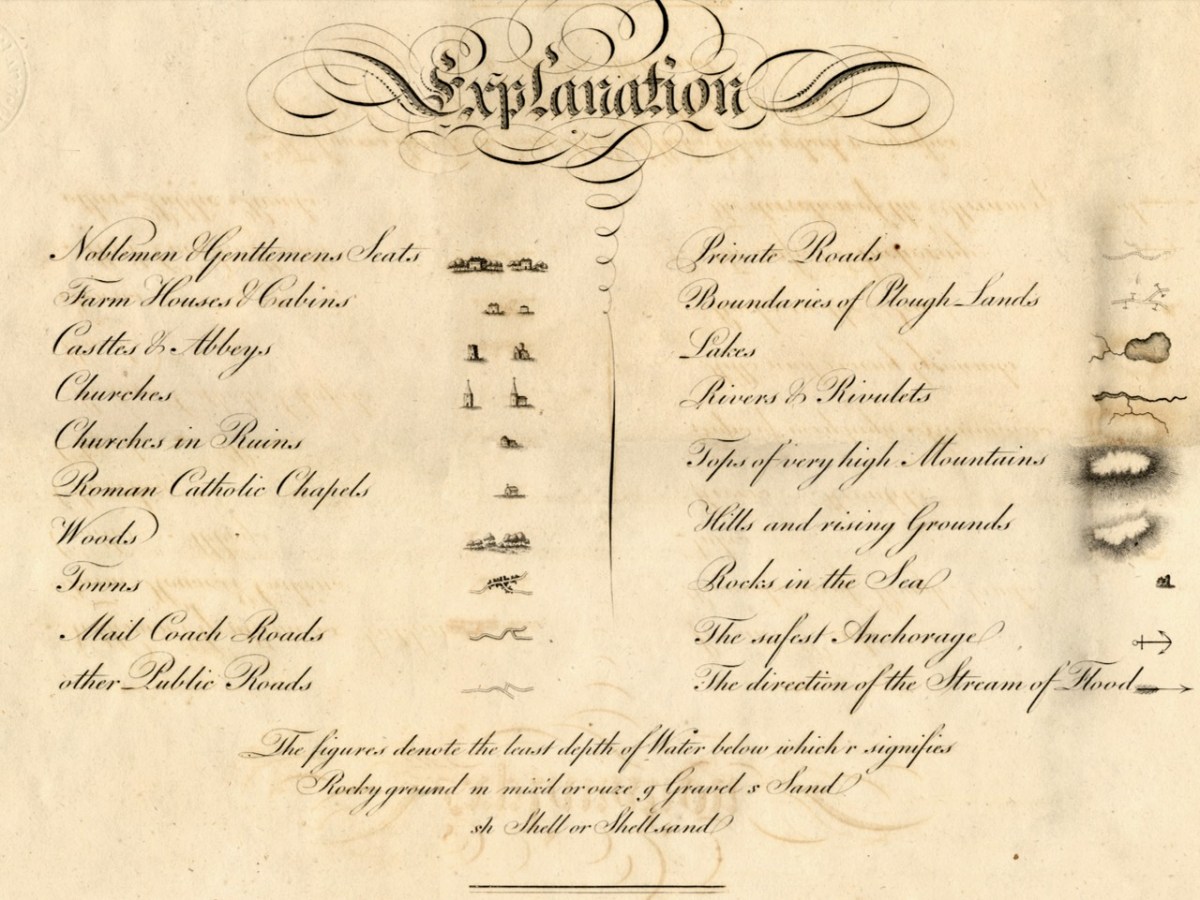 Explanation
Noblemen & Gentlemens Seats
Farm Houses & Cabins
Castles & Abbeys
Churches
Churches in Ruins
Roman Catholic Chapels
Woods
Towns
Mail Coach Roads
other Public Roads
Private Roads
Boundaries of Plough Lands
Lakes
Rivers & Rivulets
Tops of very high Mountains
Hills and rising Grounds
Rocks in the Sea
The safest Anchorage
The direction of the Stream of Flood
The figures denote the least depth of Water below which r signifies
Rocky ground m mixd or ouze g Gravel s Sand
sh Shell or Shell sand